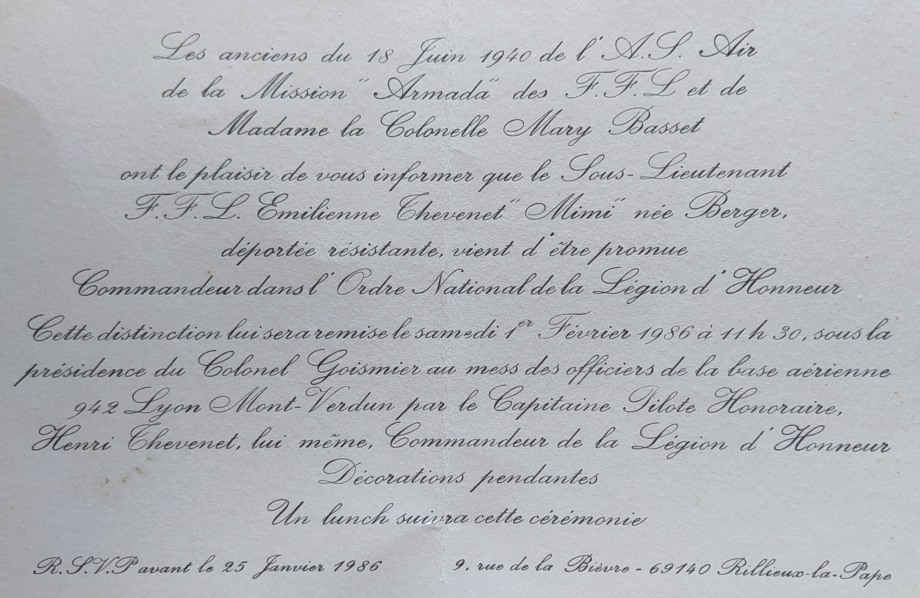 Les anciens du 18 Juin 1940 de l' A.S. Air
de la Mission "Armada" des F.F.L et de
Madame la Colonelle Mary Basset
ont le plaisir de vous informer que le Sous-Lieutenant
F.F.L. Emilienne Thevenet "Mimi" née Berger,
déportée résistante, vient d'être promue
Commandeur dans l' Ordre National de la Légion d' Honneur
Cette distinction lui sera remise le samedi 1er Février 1986 à 11 h 30, sous la
présidence du Colonel Goismier au mess des officiers de la base aérienne
942 Lyon Mont-Verdun par le Capitaine Pilote Honoraire,
Henri Thevenet, lui même, Commandeur de la Légion d' Honneur
Décorations pendantes
Un lunch suivra cette cérémonie
R.S.V.P avant le 25 Janvier 1986
9, rue de la Bièvre - 69140 Rillieux-la-Pape